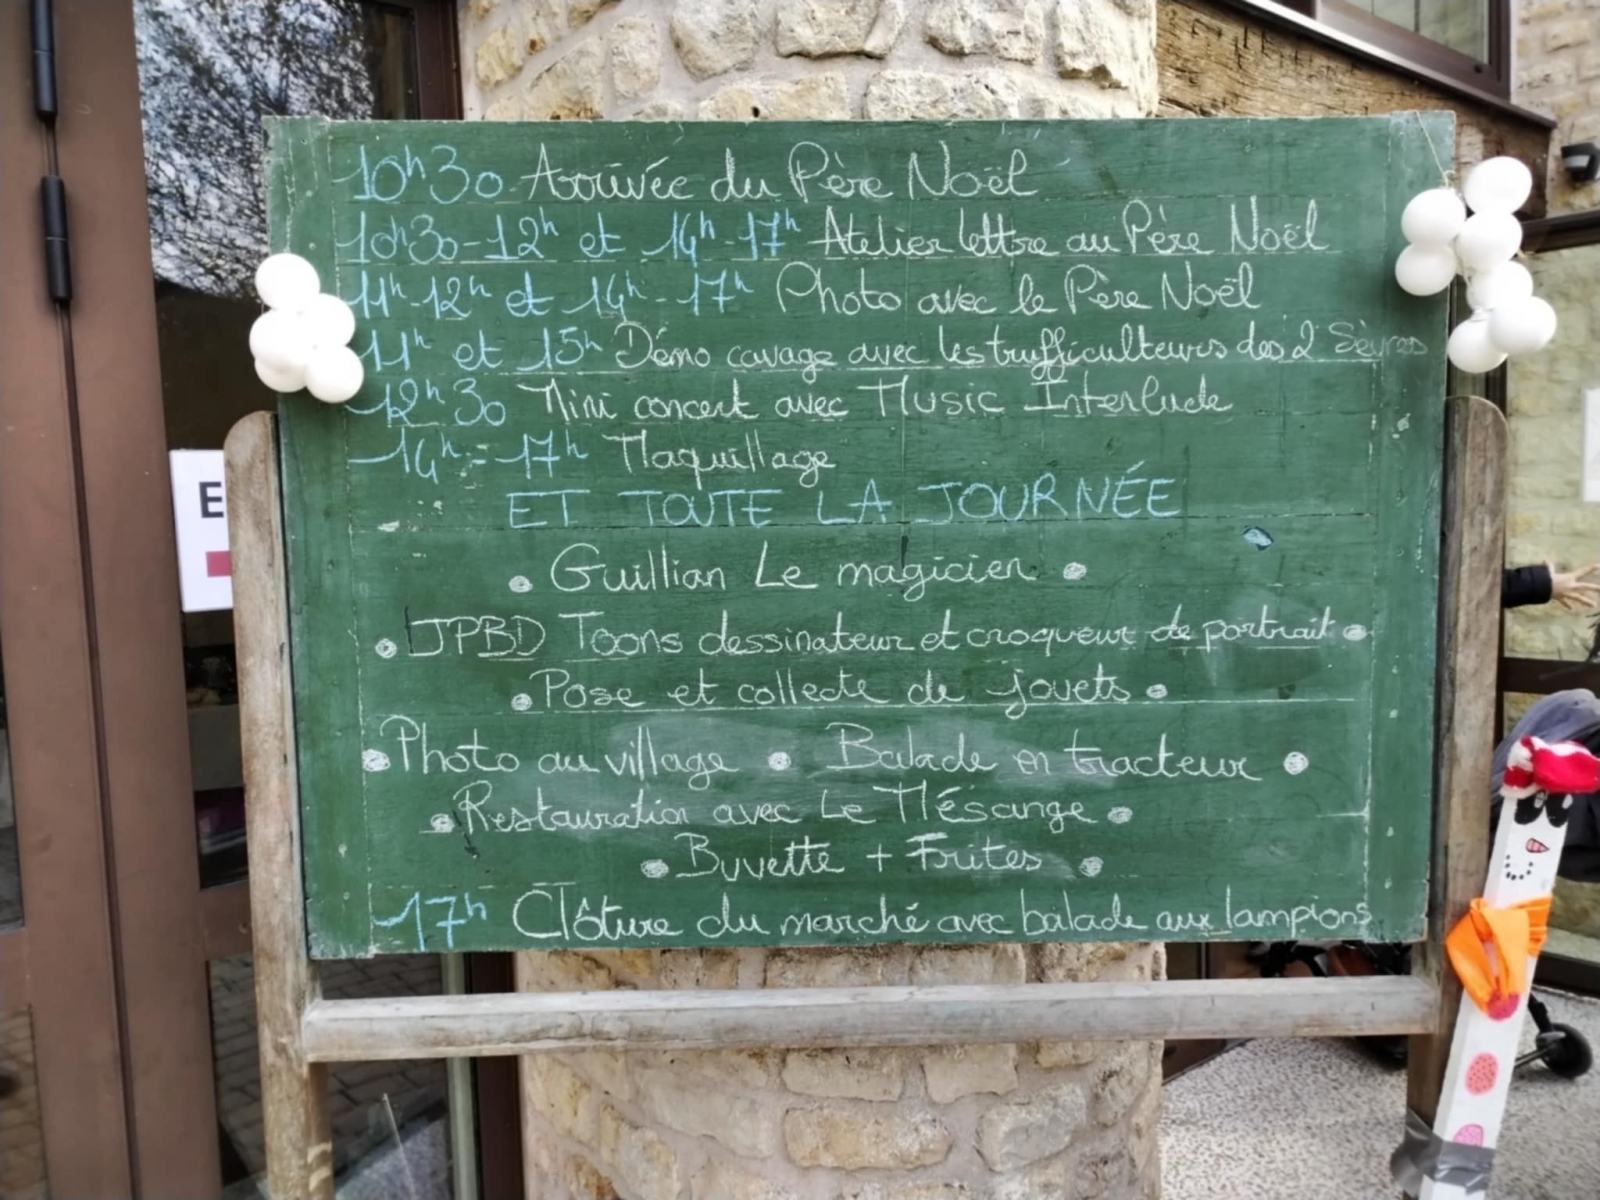 10h30 Arrivée du Père Noël
10h30-12h et 14h-17h Atelier lettre au Père Noël
11h-12h et 14h-17h Photo avec le Père Noël
11h et 15h Démo cavage avec les trufficulteurs des 2 Sèvres
12h30 Mini concert avec Music Interlude
14h-17h Maquillage
ET TOUTE LA JOURNÉE
• Guillian Le magicien •
• JPBD Toons dessinateur et croqueur de portrait •
• Pose et collecte de jouets •
• Photo au village • Balade en tracteur •
• Restauration avec Le Mésange •
• Buvette + Frites •
17h Clôture du marché avec balade aux lampions
E